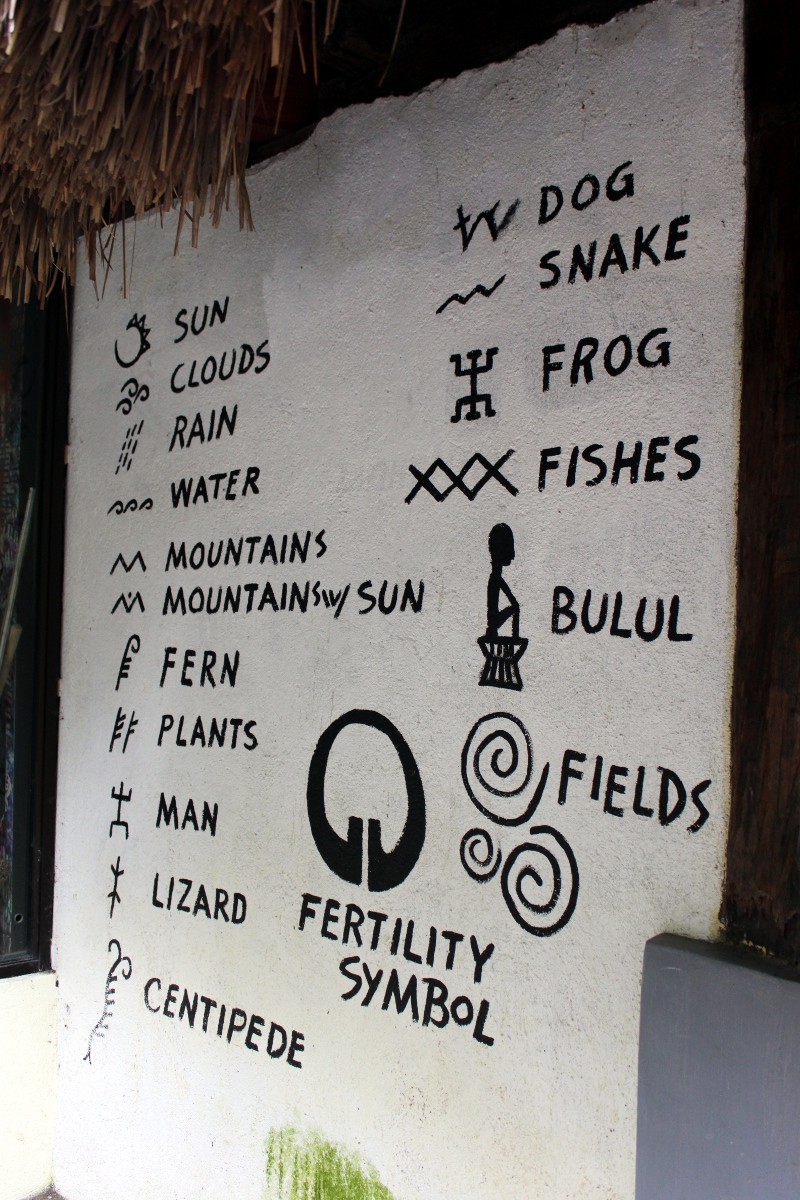 SUN
CLOUDS
RAIN
WATER
MOUNTAINS
MOUNTAINS w/ SUN
FERN
PLANTS
MAN
LIZARD
CENTIPEDE
DOG
SNAKE
FROG
FISHES
BULUL
FIELDS
FERTILITY
SYMBOL